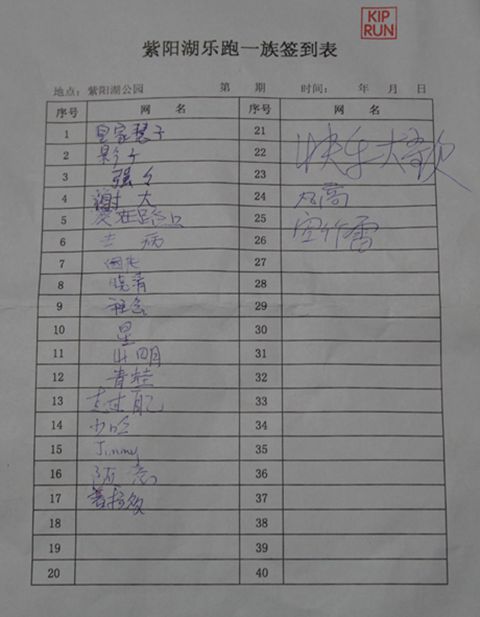 KIP
RUN
紫阳湖乐跑一族签到表
地点：紫阳湖公园 第 期 时间： 年 月 日
序号 网 名 序号 网 名
1 皇家孩子 21
2 22 快乐大
3 强々 23
4 谢大 24 高
5 爱在路口 25
6 去病 26 空竹雷
7 27
8 晓清 28
9 29
10 星 30
11 山明 31
12 青蛙 32
13 志过 33
14 34
15 Jimmy 35
16 随意 36
17 37
18 38
19 39
20 40